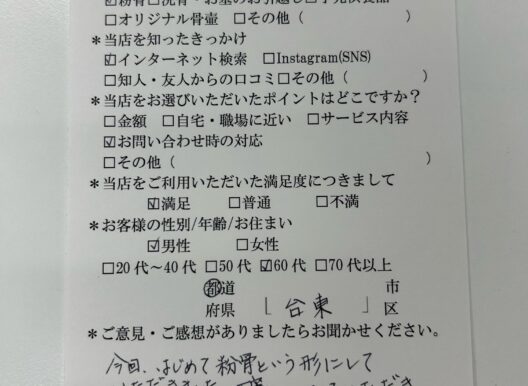 ☑粉骨□洗骨・お墓のお引越し□手元供養品
□オリジナル骨壷 □その他（ ）
＊当店を知ったきっかけ
☑インターネット検索 □Instagram(SNS)
□知人・友人からの口コミ□その他（ ）
＊当店をお選びいただいたポイントはどこですか？
□金額 □自宅・職場に近い □サービス内容
☑お問い合わせ時の対応
□その他（ ）
＊当店をご利用いただいた満足度につきまして
☑満足 □普通 □不満
＊お客様の性別/年齢/お住まい
☑男性 □女性
□20代～40代 □50代 ☑60代 □70代以上
都道 市
府県「 台東 」区
＊ご意見・ご感想がありましたらお聞かせください。
今回、はじめて粉骨という形にして